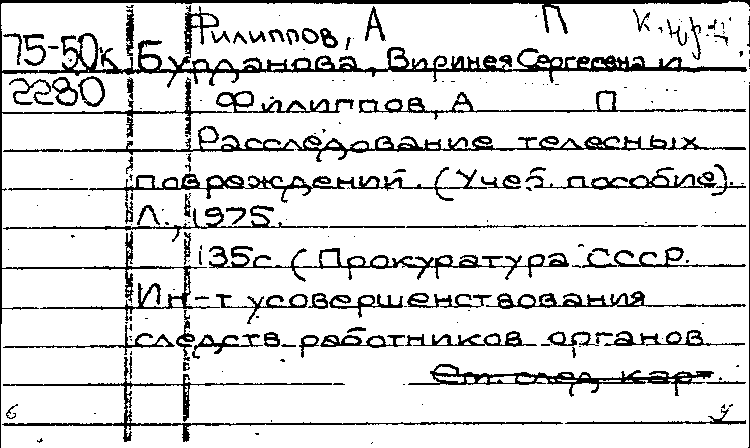 Филиппов, А П К. юр.
75-50к Бурданова, Виринея Сергеевна и
2280 Филиппов, А П
Расследование телесных
повреждений. (Учеб. пособие).
Л., 1975.
135с. (Прокуратура СССР.
Ин-т усовершенствования
следств. работников органов
См. след. карт.
б